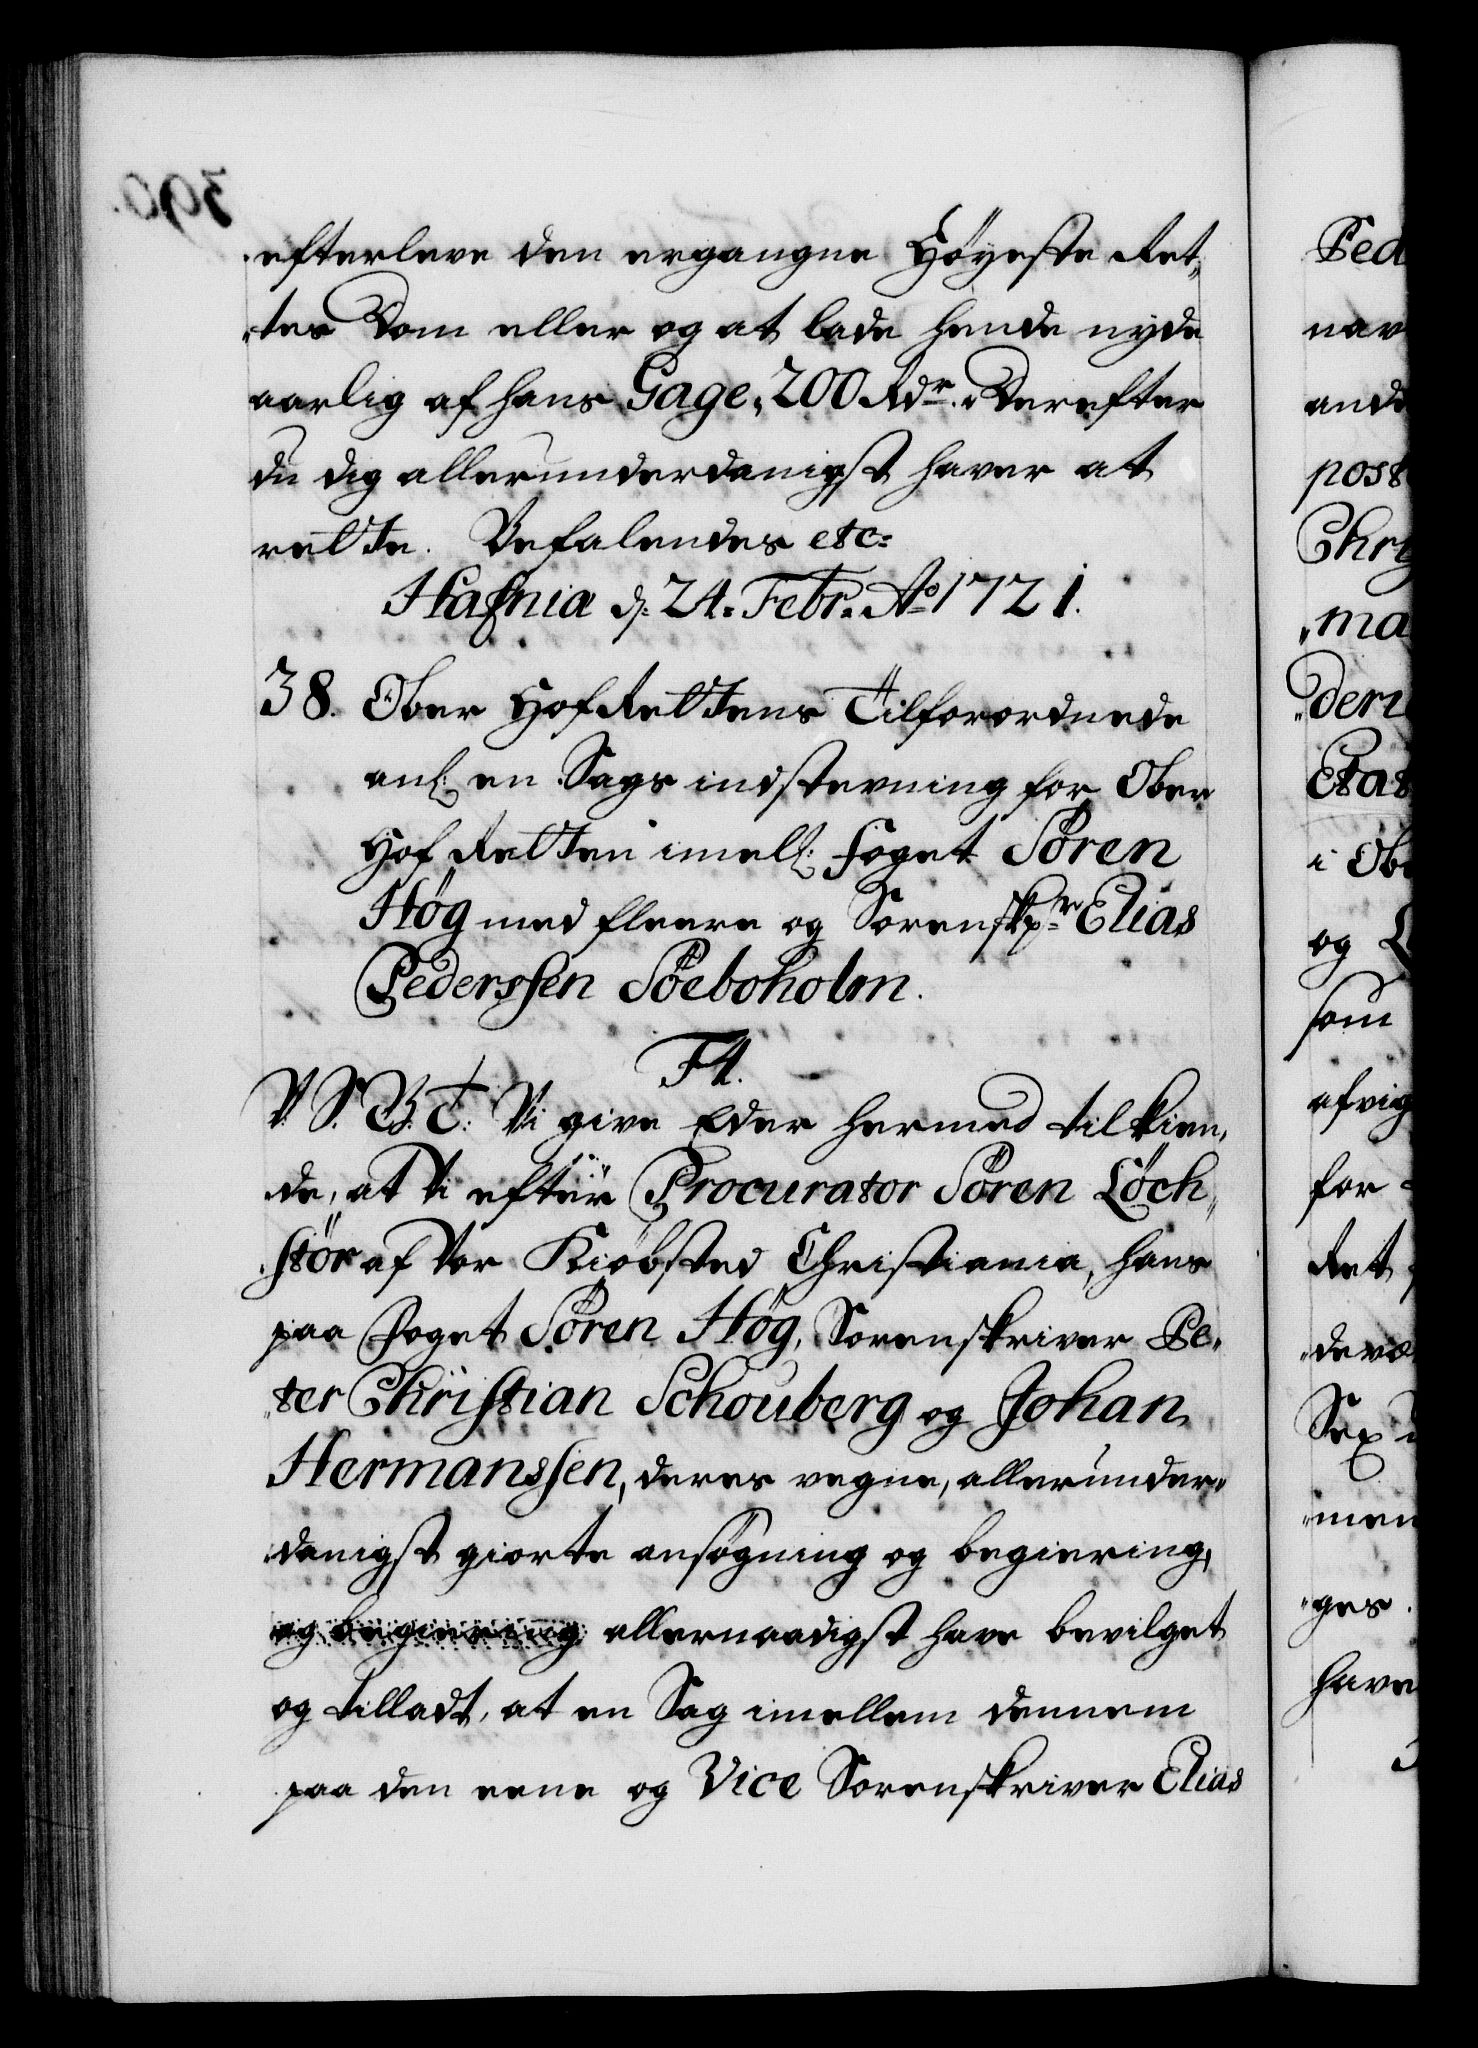 390.
efterleve den ergangne Høyeste Ret„
„tes Dom eller og at lade hende nyde
aarlig af hans Gage, 200 Rdr. Derefter
du dig allerunderdanigst haver at
rette. Befalendes etc:
Hafnia d: 24. Febr: Ao 1721.
38. Ober HofRettens Tilforordnede
anl: en Sags indstevning for Ober
HofRetten imell: foget Søren
Høg med fleere og Sorenskr: Elias
Pederssen Søeboholm.
F4.
V. S. G. T. Vi give Eder hermed tilkien„
de, at Vi efter Procurator Søren Løch„
„stør af Vor Kiøbsted Christiania, hans
paa Foget Søren Høg, Sorenskriver Pe„
„ter Christian Schouberg og Johan
Hermanssen, deres vegne, allerunder„
„danigst giorte ansøgning og begiering,
og begiering allernaadigst have bevilget
og tilladt, at en Sag imellem dennem
paa den eene og Vice Sorenskriver Elias
Ped
nav
ande
post
Chri
„ma
„deri
Etat
i Obe
og L
som
afvig
for
Ret
„devæ
Sex
„men
„ges.
have